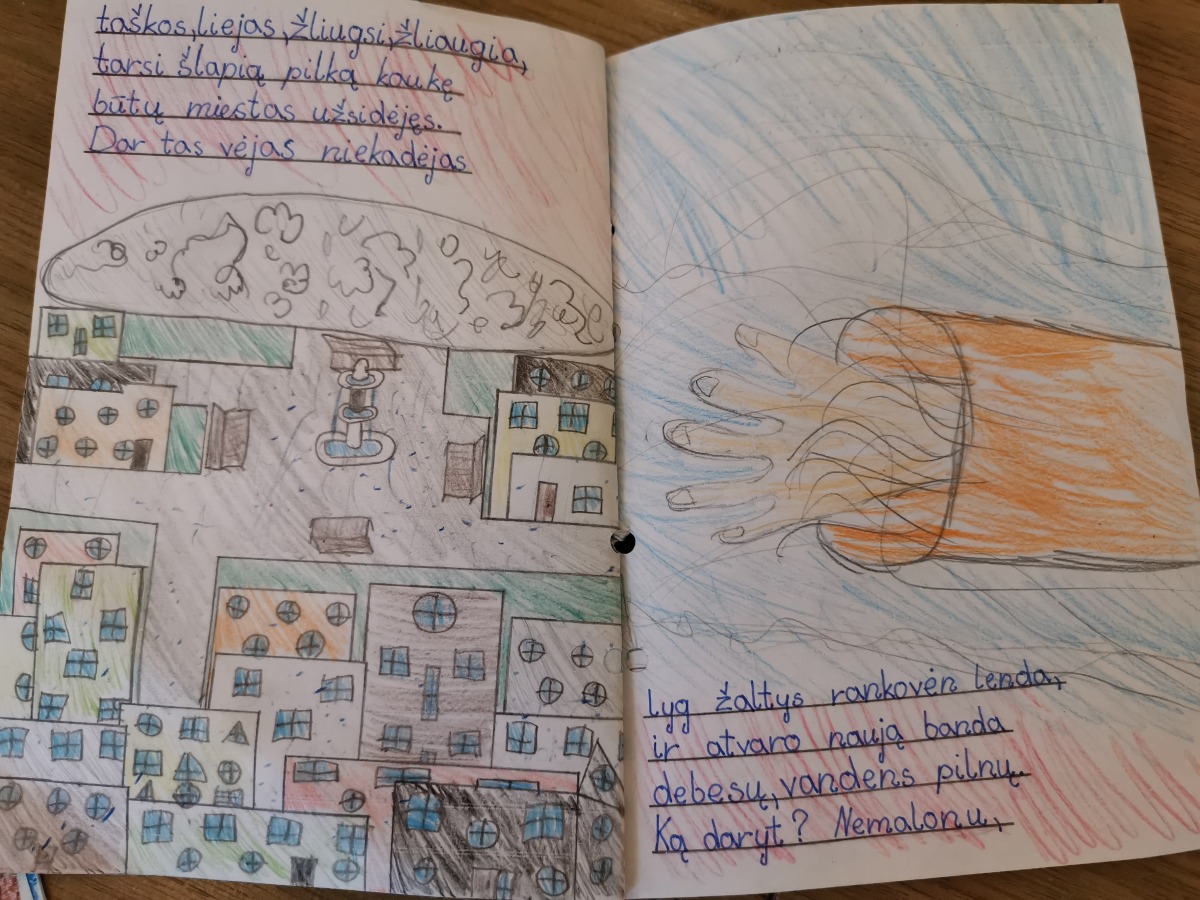 taškos, liejas, žliugsi, žliaugia,
tarsi šlapią pilką kaukę
būtų miestas užsidėjęs.
Dar tas vėjas niekadėjas
lyg žaltys rankovėn lenda,
ir atvaro naują banda
debesų, vandens pilnų.
Ką daryt? Nemalonu,